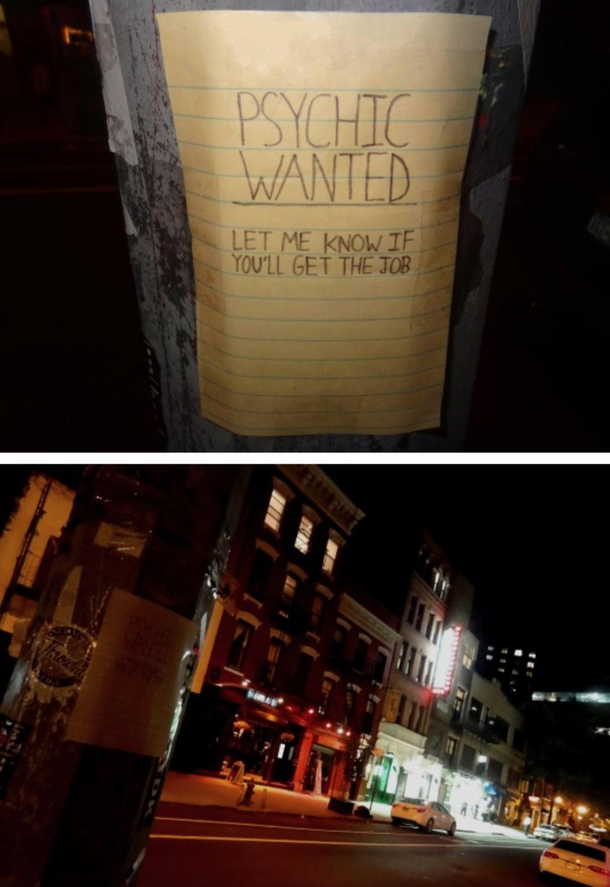 PSYCHIC
WANTED
LET ME KNOW IF
YOU'LL GET THE JOB